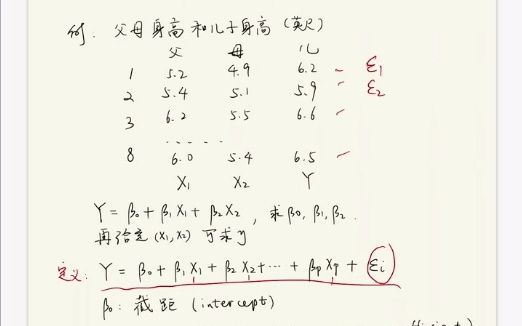 例. 父母身高和儿子身高 (英尺)
父 母 儿
1 5.2 4.9 6.2 ε1
2 5.4 5.1 5.9 ε2
3 6.2 5.5 6.6
......
8 6.0 5.4 6.5
X1 X2 Y
Y = β0 + β1X1 + β2X2, 求β0, β1, β2.
再给定 (X1, X2) 可求y
定义: Y = β0 + β1X1 + β2X2 + ... + βpXp + εi
β0: 截距 (intercept)